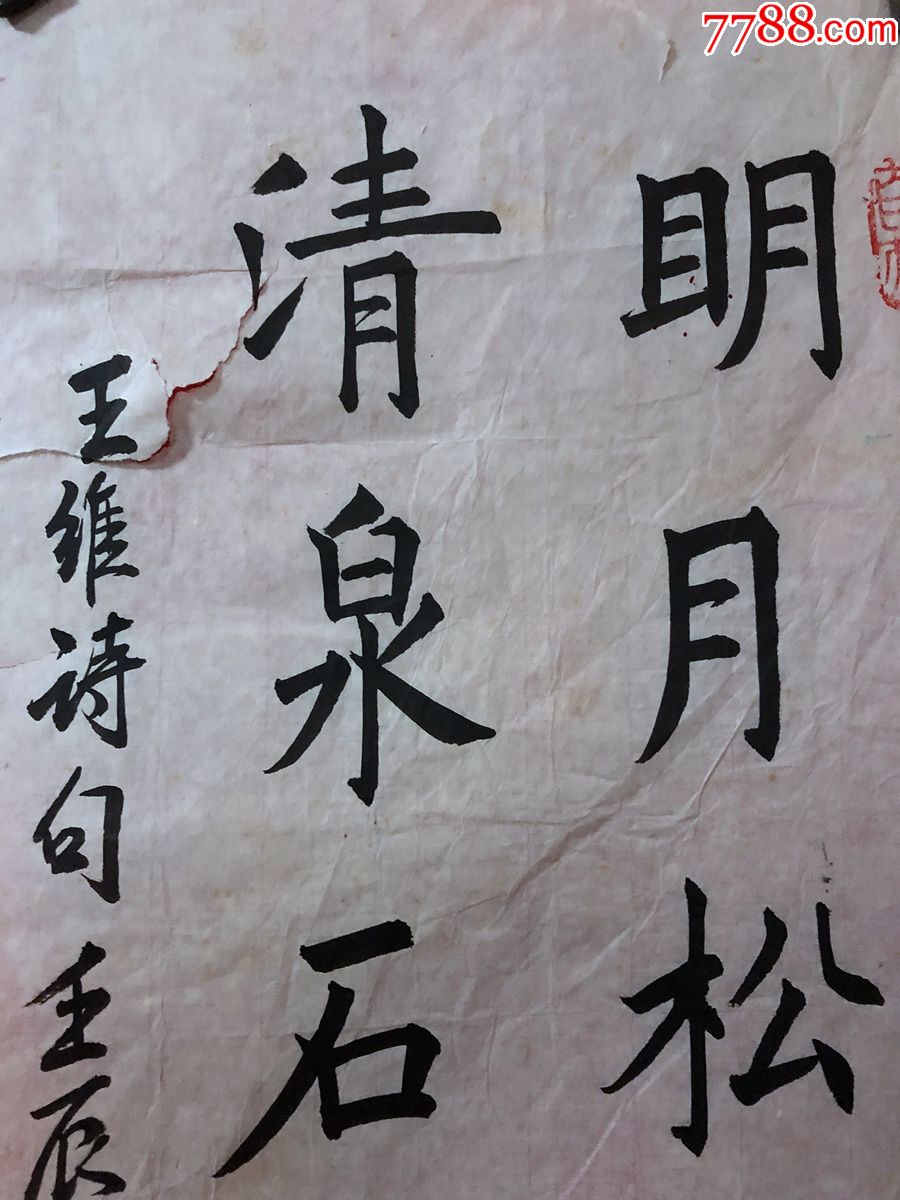 7788.com
明月松
清泉石
王维诗句 壬辰